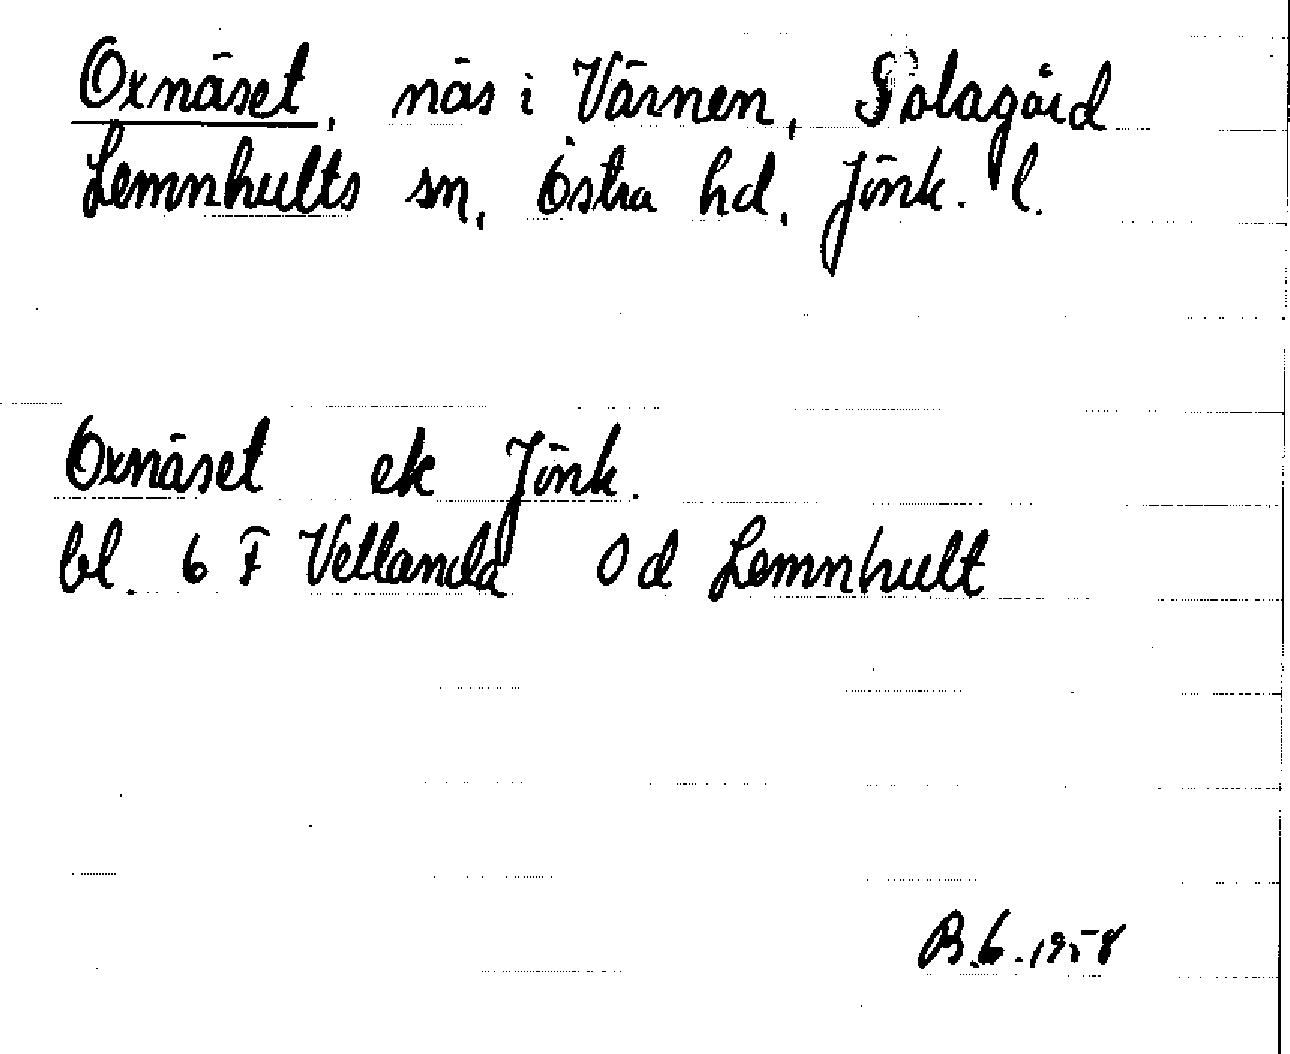 Oxnäset, näs i Värnen, Solagård
Lemnhults sn, Östra hd, Jönk. l.
Oxnäset ek Jönk.
bl. 6 F Vetlanda 0 d Lemnhult
B.G. 1958